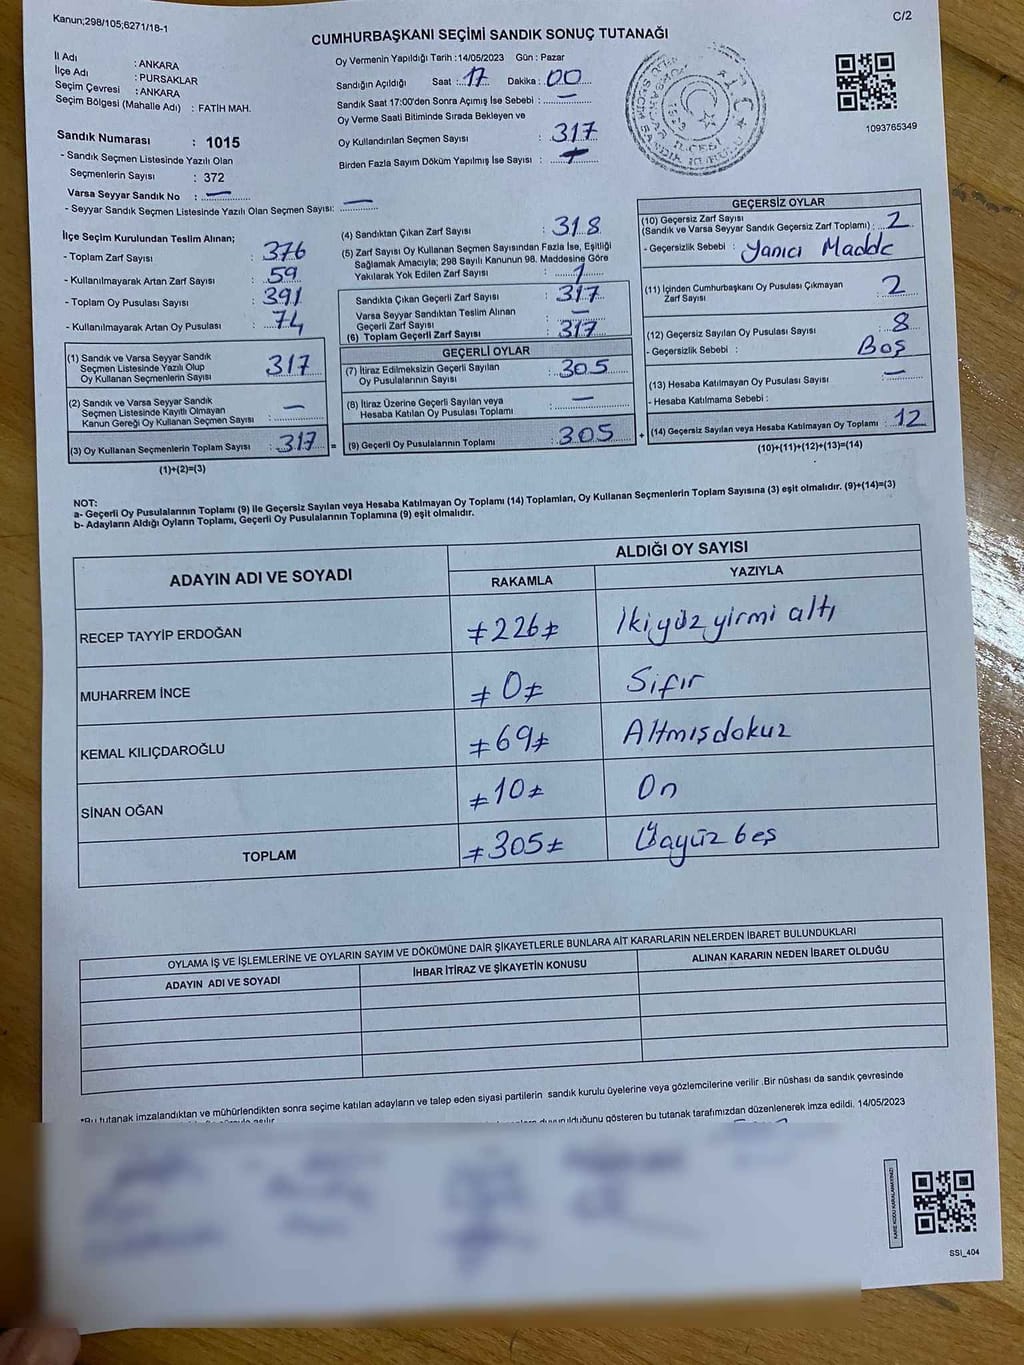 Kanun;298/105;6271/18-1
C/2
CUMHURBAŞKANI SEÇİMİ SANDIK SONUÇ TUTANAĞI
İl Adı : ANKARA
İlçe Adı : PURSAKLAR
Seçim Çevresi : ANKARA
Seçim Bölgesi (Mahalle Adı) : FATİH MAH.
Sandık Numarası : 1015
- Sandık Seçmen Listesinde Yazılı Olan
Seçmenlerin Sayısı : 372
Varsa Seyyar Sandık No : —
- Seyyar Sandık Seçmen Listesinde Yazılı Olan Seçmen Sayısı: —
Oy Vermenin Yapıldığı Tarih :14/05/2023 Gün : Pazar
Sandığın Açıldığı Saat : 17 Dakika : 00
Sandık Saat 17:00'den Sonra Açımış İse Sebebi : —
Oy Verme Saati Bitiminde Sırada Bekleyen ve
Oy Kullandırılan Seçmen Sayısı : 317
Birden Fazla Sayım Döküm Yapılmış İse Sayısı :
1093765349
İlçe Seçim Kurulundan Teslim Alınan;
- Toplam Zarf Sayısı : 376
- Kullanılmayarak Artan Zarf Sayısı : 59
- Toplam Oy Pusulası Sayısı : 391
- Kullanılmayarak Artan Oy Pusulası : 74
(1) Sandık ve Varsa Seyyar Sandık
Seçmen Listesinde Yazılı Olup
Oy Kullanan Seçmenlerin Sayısı : 317
(2) Sandık ve Varsa Seyyar Sandık
Seçmen Listesinde Kayıtlı Olmayan
Kanun Gereği Oy Kullanan Seçmen Sayısı : —
(3) Oy Kullanan Seçmenlerin Toplam Sayısı : 317 =
(1)+(2)=(3)
(4) Sandıktan Çıkan Zarf Sayısı : 318
(5) Zarf Sayısı Oy Kullanan Seçmen Sayısından Fazla İse, Eşitliği
Sağlamak Amacıyla; 298 Sayılı Kanunun 98. Maddesine Göre
Yakılarak Yok Edilen Zarf Sayısı : 1
Sandıkta Çıkan Geçerli Zarf Sayısı : 317
Varsa Seyyar Sandıktan Teslim Alınan
Geçerli Zarf Sayısı : —
(6) Toplam Geçerli Zarf Sayısı : 317
GEÇERLİ OYLAR
(7) İtiraz Edilmeksizin Geçerli Sayılan
Oy Pusulalarının Sayısı : 305
(8) İtiraz Üzerine Geçerli Sayılan veya
Hesaba Katılan Oy Pusulası Toplamı : —
(9) Geçerli Oy Pusulalarının Toplamı : 305 +
GEÇERSİZ OYLAR
(10) Geçersiz Zarf Sayısı
(Sandık ve Varsa Seyyar Sandık Geçersiz Zarf Toplamı) : 2
- Geçersizlik Sebebi : Yanıcı Madde
(11) İçinden Cumhurbaşkanı Oy Pusulası Çıkmayan
Zarf Sayısı : 2
(12) Geçersiz Sayılan Oy Pusulası Sayısı : 8
- Geçersizlik Sebebi : Boş
(13) Hesaba Katılmayan Oy Pusulası Sayısı : —
- Hesaba Katılmama Sebebi :
(14) Geçersiz Sayılan veya Hesaba Katılmayan Oy Toplamı : 12
(10)+(11)+(12)+(13)=(14)
NOT:
a- Geçerli Oy Pusulalarının Toplamı (9) ile Geçersiz Sayılan veya Hesaba Katılmayan Oy Toplamı (14) Toplamları, Oy Kullanan Seçmenlerin Toplam Sayısına (3) eşit olmalıdır. (9)+(14)=(3)
b- Adayların Aldığı Oyların Toplamı, Geçerli Oy Pusulalarının Toplamına (9) eşit olmalıdır.
ADAYIN ADI VE SOYADI
ALDIĞI OY SAYISI
RAKAMLA YAZIYLA
RECEP TAYYİP ERDOĞAN ≠226≠ İkiyüz yirmi altı
MUHARREM İNCE ≠0≠ Sıfır
KEMAL KILIÇDAROĞLU ≠69≠ Altmışdokuz
SİNAN OĞAN ≠10≠ On
TOPLAM ≠305≠ Üçyüz beş
OYLAMA İŞ VE İŞLEMLERİNE VE OYLARIN SAYIM VE DÖKÜMÜNE DAİR ŞİKAYETLERLE BUNLARA AİT KARARLARIN NELERDEN İBARET BULUNDUKLARI
ADAYIN ADI VE SOYADI İHBAR İTİRAZ VE ŞİKAYETİN KONUSU ALINAN KARARIN NEDEN İBARET OLDUĞU
*Bu tutanak imzalandıktan ve mühürlendikten sonra seçime katılan adayların ve talep eden siyasi partilerin sandık kurulu üyelerine veya gözlemcilerine verilir .Bir nüshası da sandık çevresinde
duyurulduğunu gösteren bu tutanak tarafımızdan düzenlenerek imza edildi. 14/05/2023
SSI_404